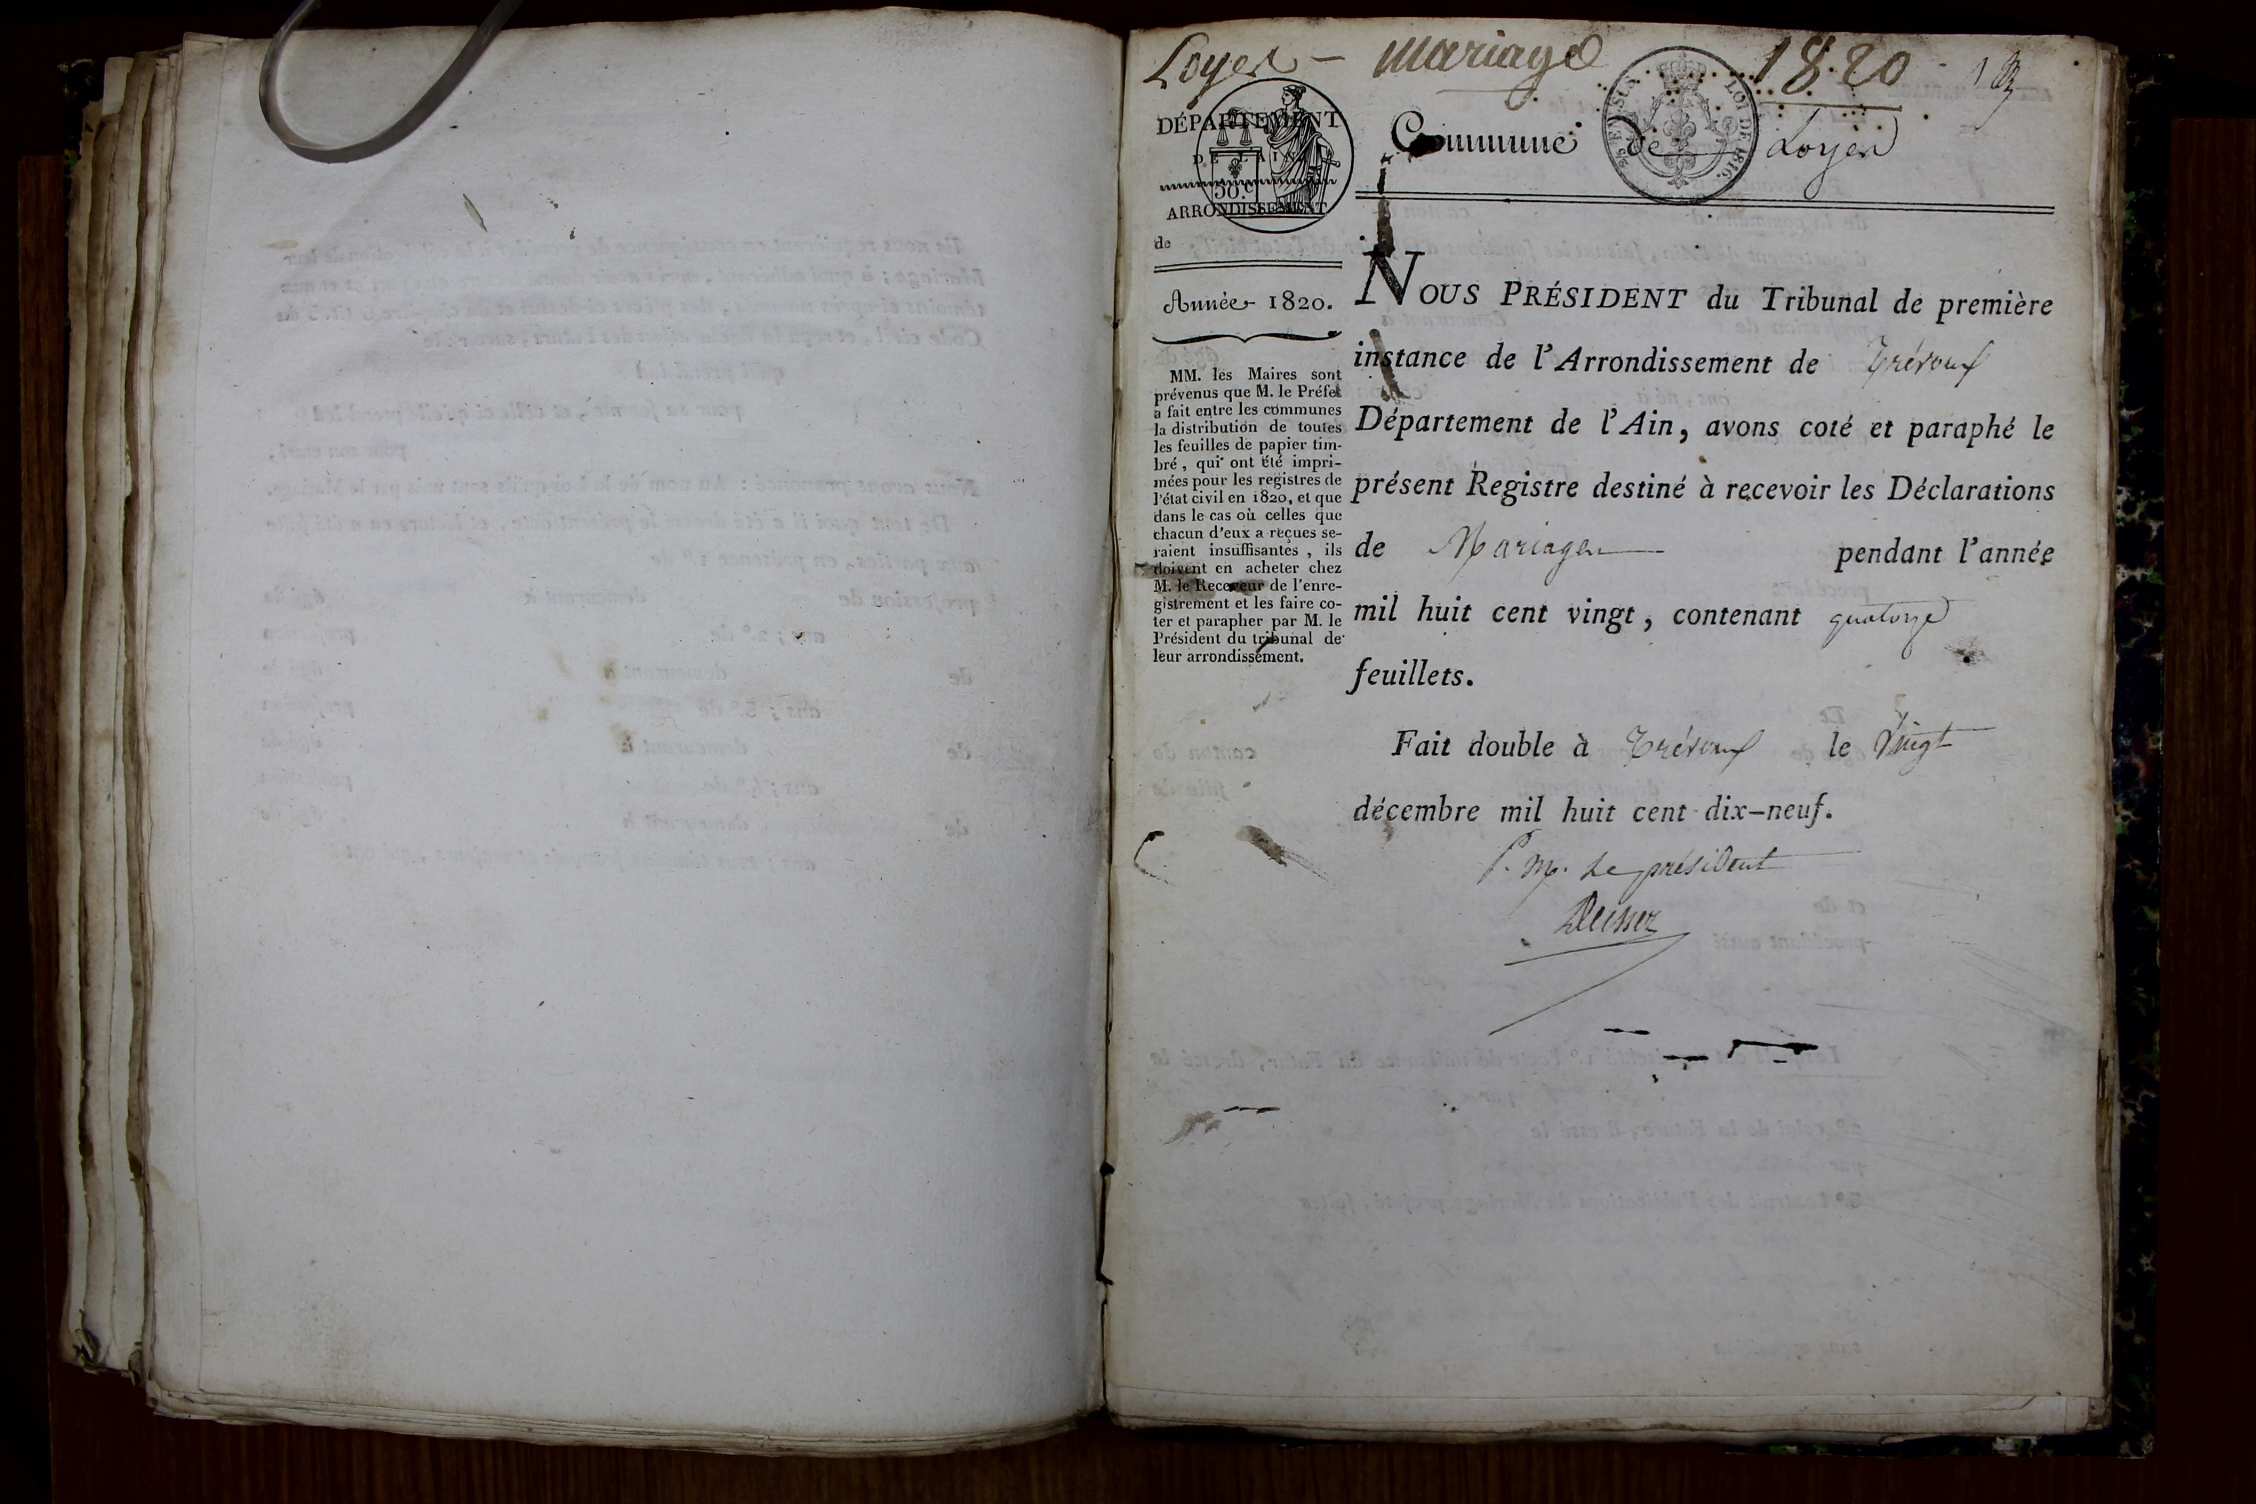 Loyes - mariage 1820
DÉPARTEMENT
DE L'AIN
50.c
ARRONDISSEMENT
de
Année 1820.
MM. les Maires sont
prévenus que M. le Préfet
a fait entre les communes
la distribution de toutes
les feuilles de papier tim-
bré, qui ont été impri-
mées pour les registres de
l'état civil en 1820, et que
dans le cas où celles que
chacun d'eux a reçues se-
raient insuffisantes, ils
doivent en acheter chez
M. le Receveur de l'enre-
gistrement et les faire co-
ter et parapher par M. le
Président du tribunal de
leur arrondissement.
Commune de Loyes
LOI DE 1816.
NOUS PRÉSIDENT du Tribunal de première
instance de l'Arrondissement de Trévoux
Département de l'Ain, avons coté et paraphé le
présent Registre destiné à recevoir les Déclarations
de Mariages pendant l'année
mil huit cent vingt, contenant quatorze
feuillets.
Fait double à Trévoux le Vingt
décembre mil huit cent dix-neuf.
P. M. Le président